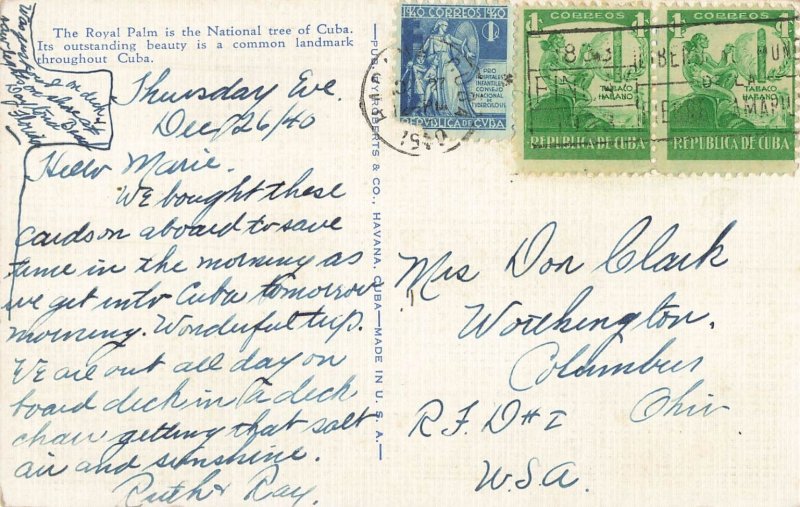 The Royal Palm is the National tree of Cuba.
Its outstanding beauty is a common landmark
throughout Cuba.
Thursday Eve.
Dec 26/40
Hello Marie.
We bought these
cards on aboard to save
time in the morning as
we get into Cuba tomorrow
morning. Wonderful trip.
We are out all day on
board deck in a deck
chair getting that salt
air and sunshine.
Ruth & Ray.
PUB. BY ROBERTS & CO., HAVANA, CUBA—MADE IN U. S. A.—
1940 CORREOS 1940
1
PRO
HOSPITALES
INFANTILES CONSEJO
NACIONAL DE
TUBERCULOSIS
REPUBLICA DE CUBA
CORREOS
1
TABACO
HABANO
REPUBLICA DE CUBA
CORREOS
1
TABACO
HABANO
REPUBLICA DE CUBA
Mrs Don Clark
Worthington.
Columbus
Ohio
R.F.D #1
U.S.A.